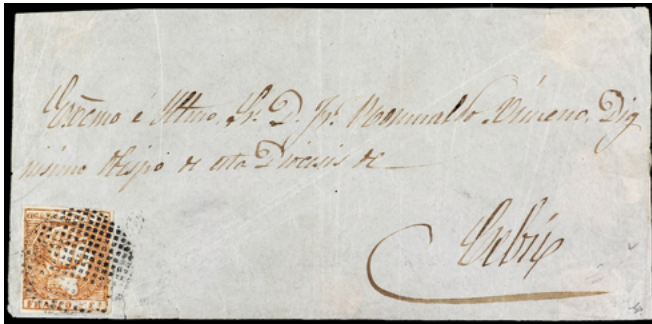 Excmo é Iltmo. Sr. D. Fr. Romualdo Ximeno, Dig
nisimo Obispo de esta Diocesis de
Cebú
FRANCO